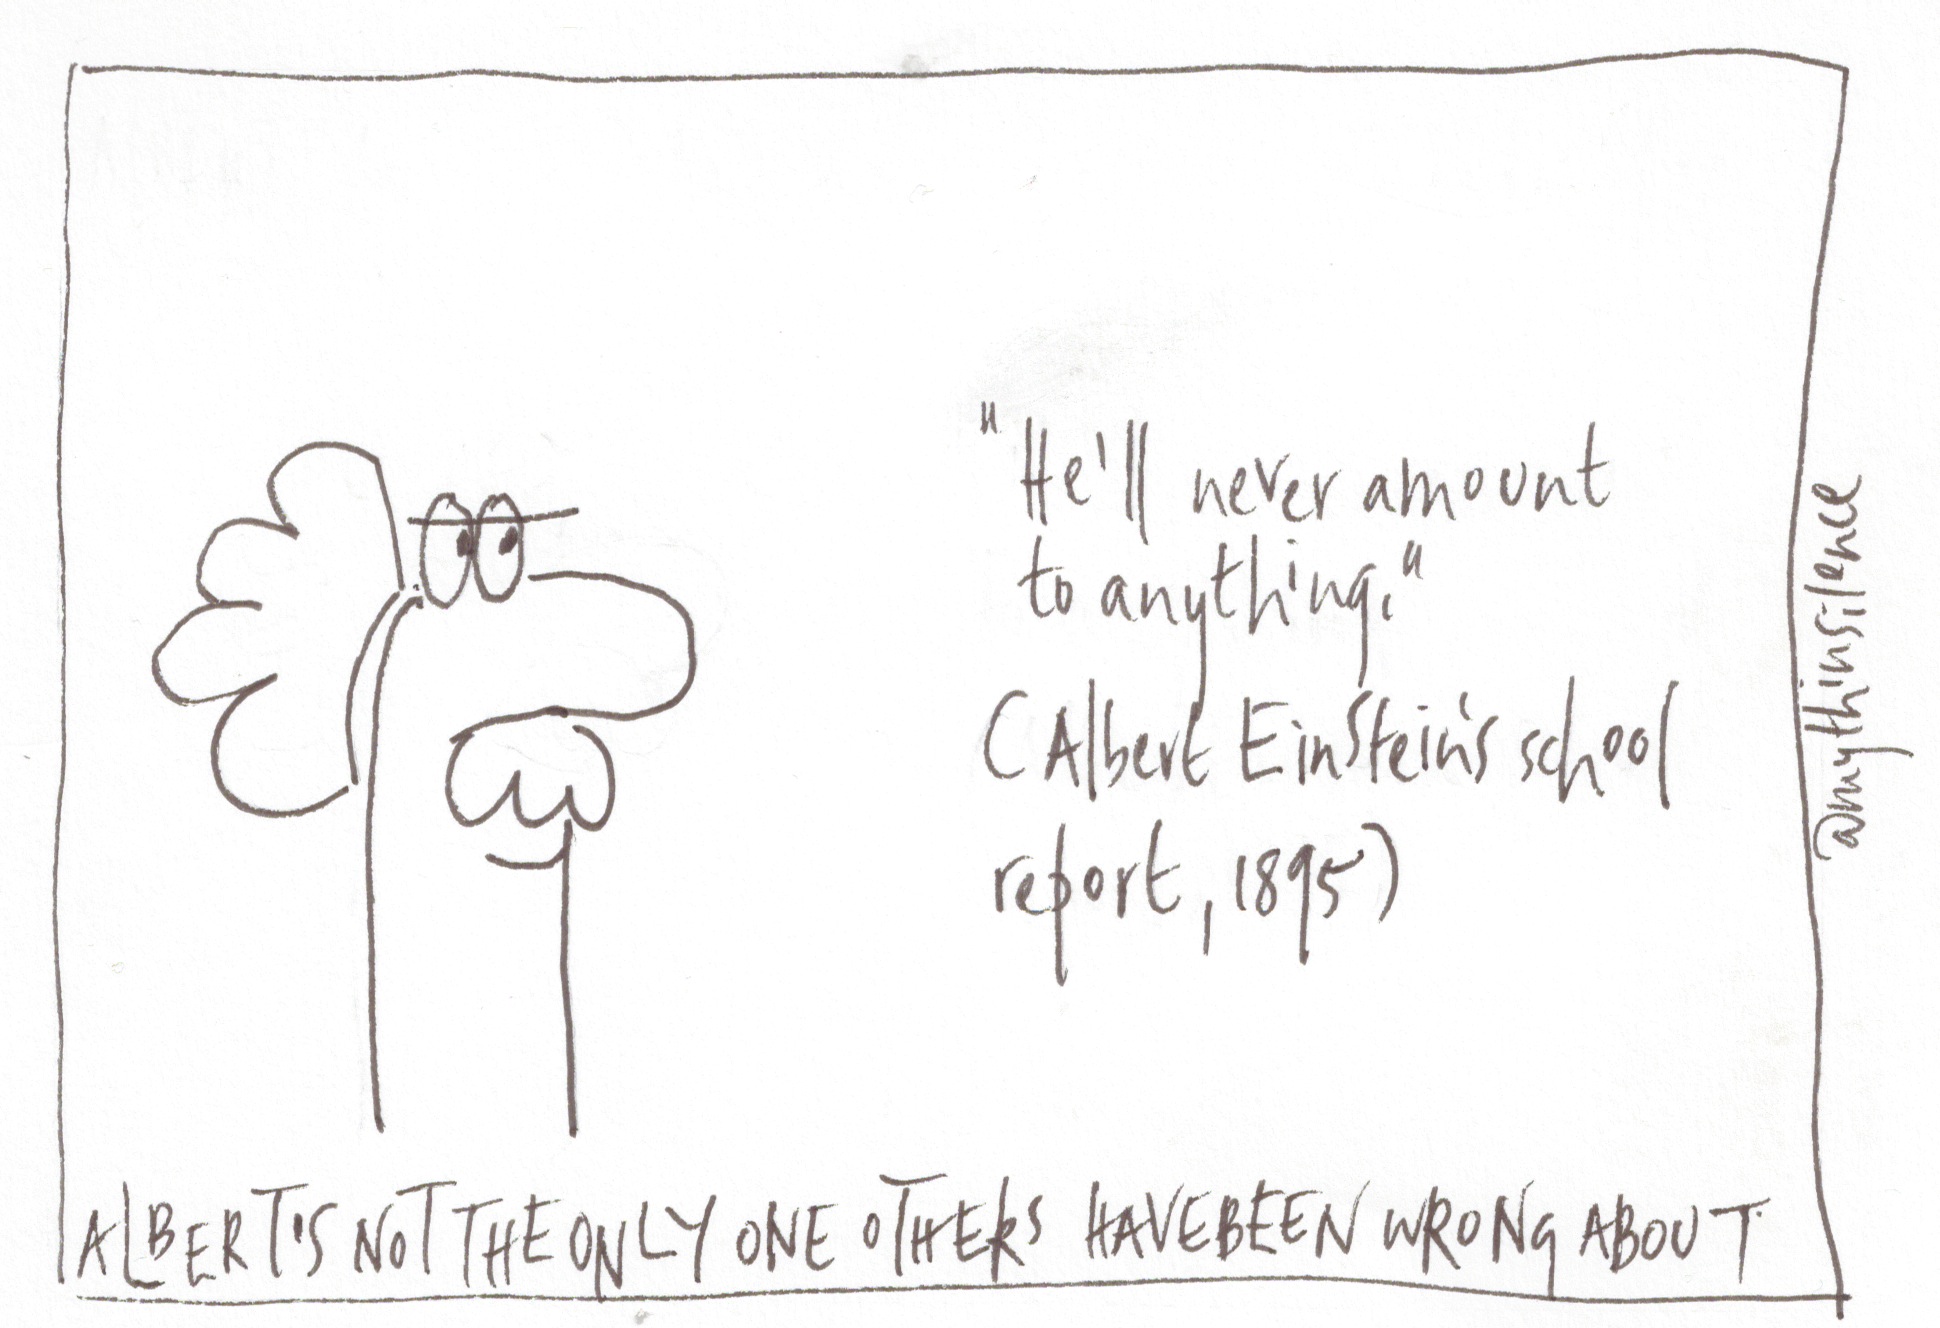 "He'll never amount
to anything."
(Albert Einstein's school
report, 1895)
@mythinsilence
ALBERT'S NOT THE ONLY ONE OTHERS HAVE BEEN WRONG ABOUT